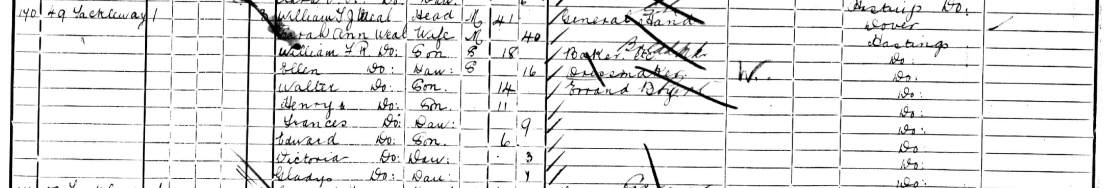 Hastings Do:
140 49 Tackleway 1 William T J Weal Head M 41 General Hand Dover
Sarah Ann Weal Wife M 40 Hastings
William F R Do: Son S 18 Baker Do:
Ellen Do: Daur: S 16 Dressmaker W. Do:
Walter Do: Son. 14 Errand Boy Do:
Henry Do: Son. 11 Do:
Frances Do: Daur: 9 Do:
Edward Do: Son. 6 Do:
Victoria Do: Daur: 3 Do:
Gladys Do: Daur: Do: